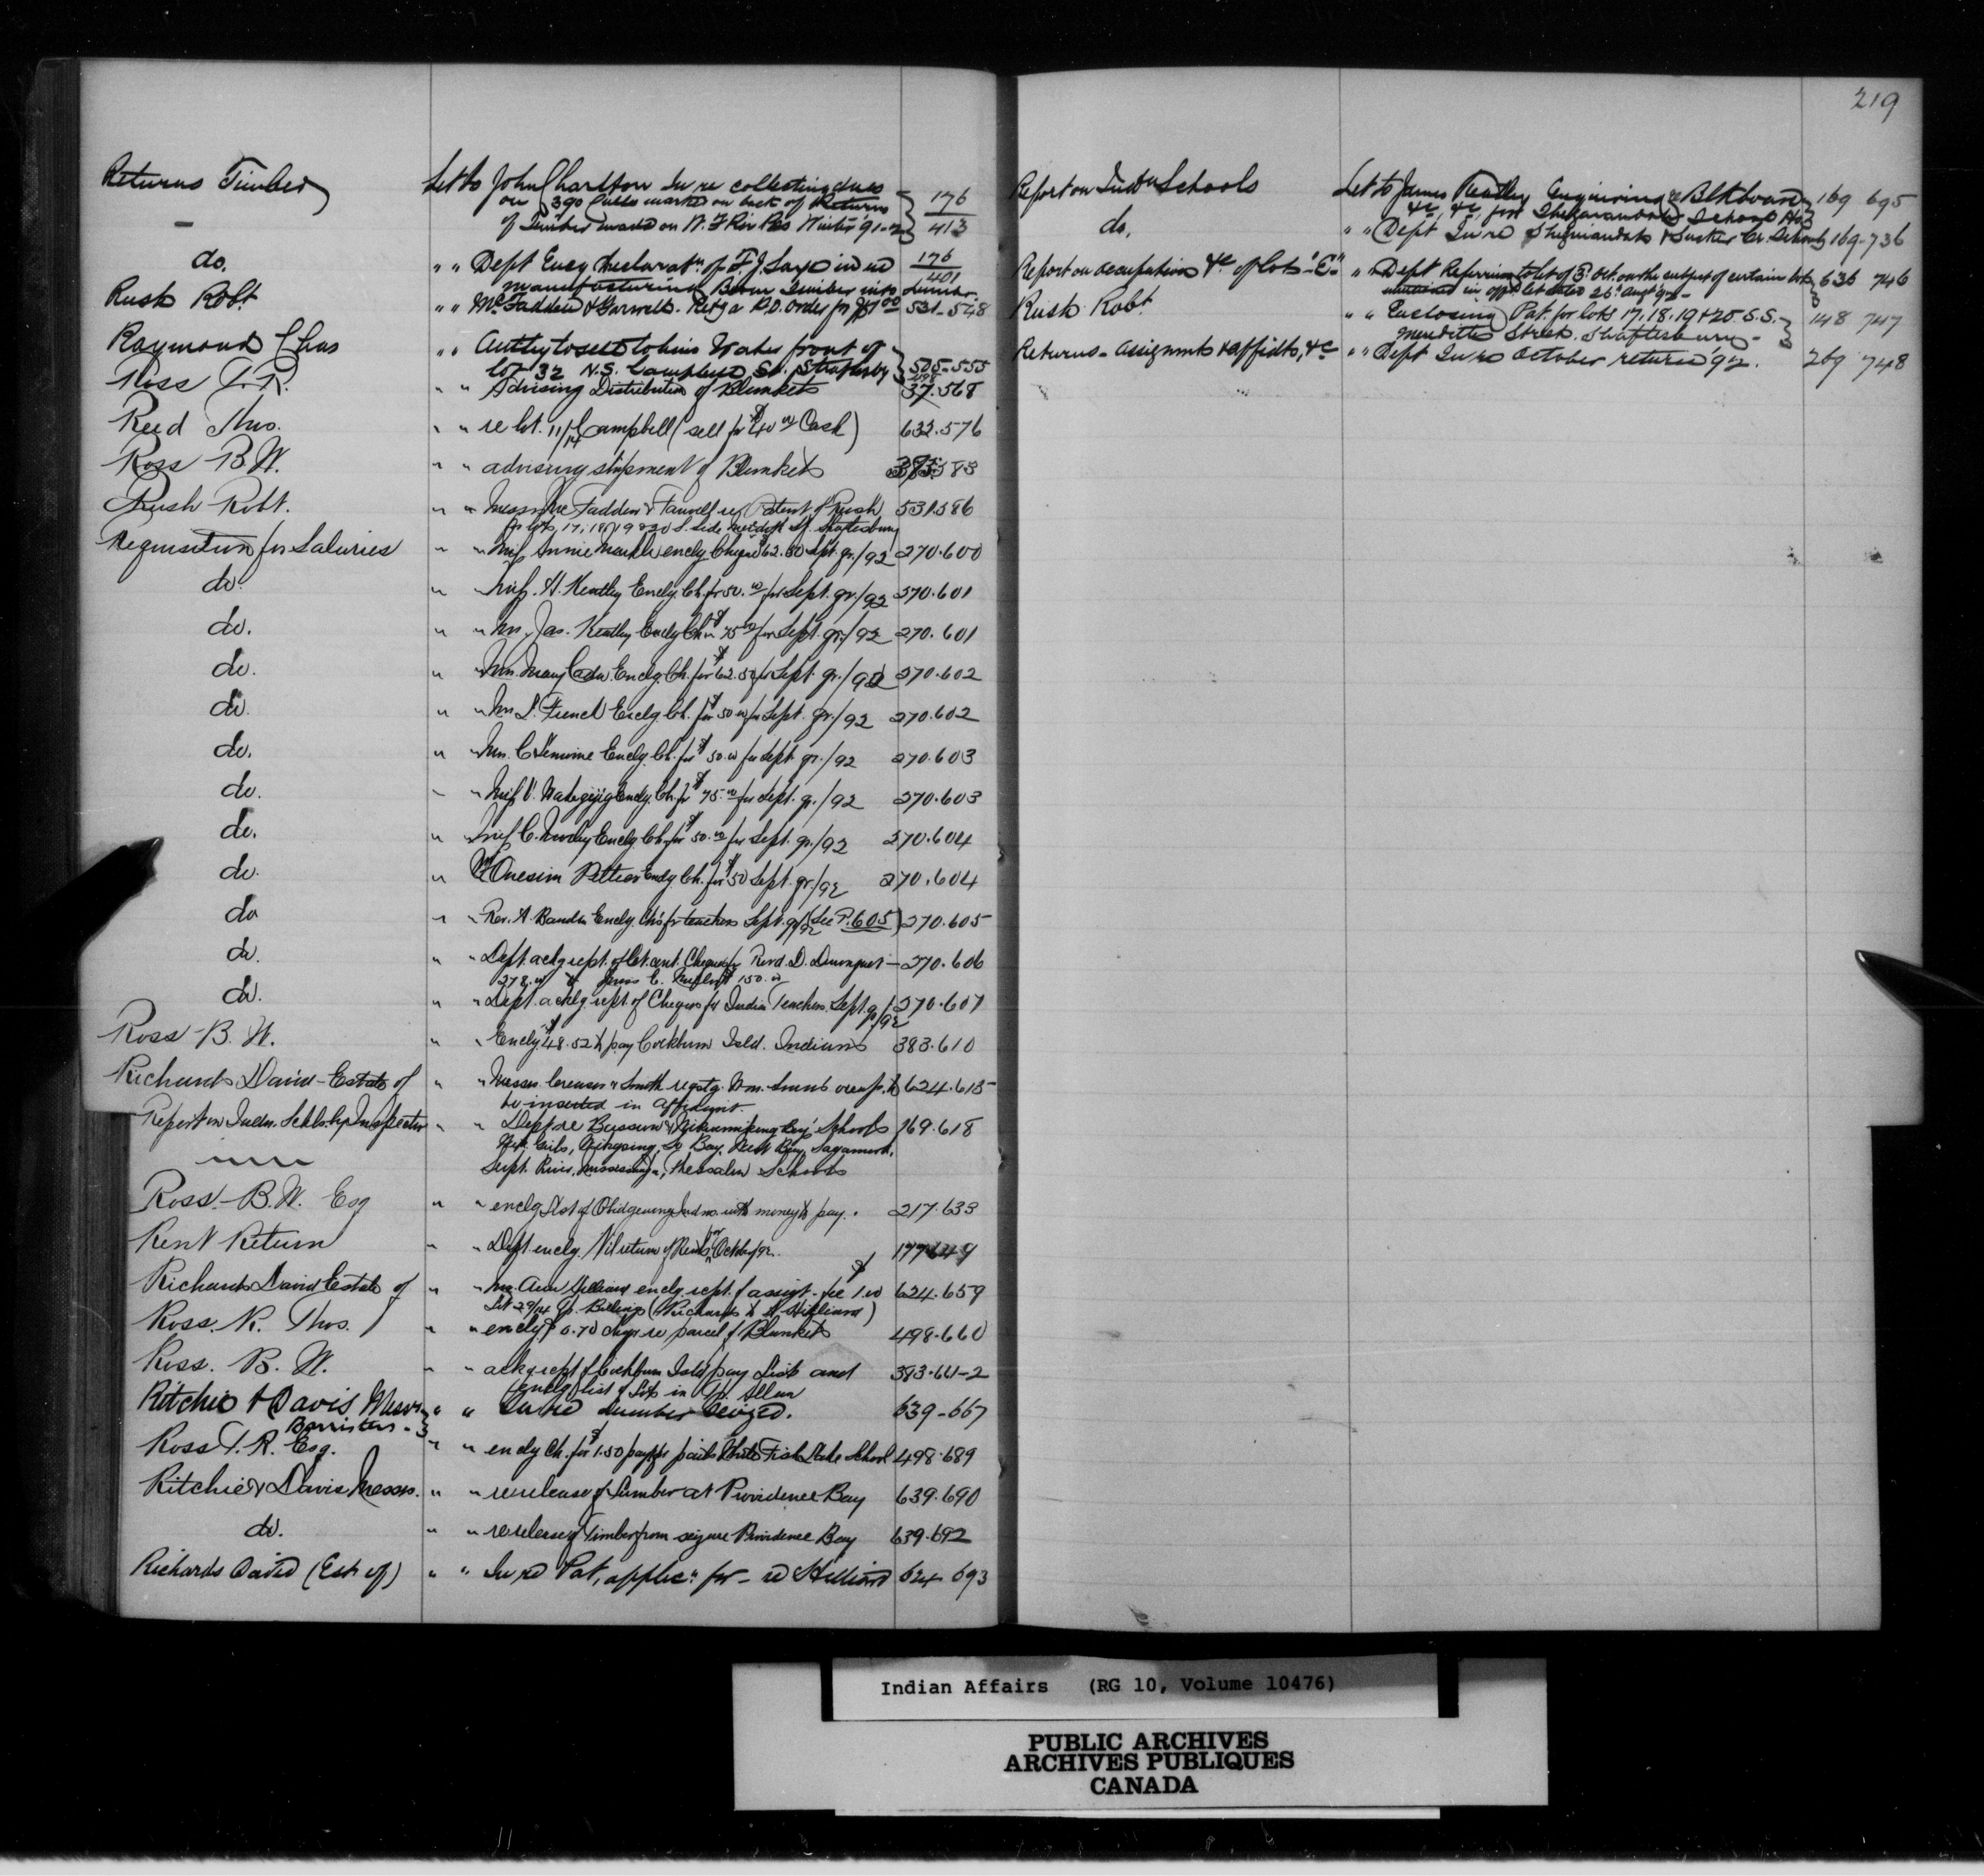 219
Returns Timber Let to John Charlton In re collecting dues
on 390 pulls marked on back of Returns 176
of Timber made on W. F. River Res Winter 91-2 413
do. " " Dept Encg Declaratn. of F. J. Saxe in re 176
manufacturing Boom Timber into Lumber 401
Rush Robt. " " McFadden & Garwell. Retg a P.O. order for $1.00 531-548
Raymond Chas " " Authy to sell to him Water front of
lot 32 N.S. Campbell St. Shaftesby 505-555
Ross T. R. " " Advising Distribution of Blankets 37.568
Reed Thos. " " re lot. 11/14 Campbell (sell for $40.00 Cash) 632.576
Ross B. W. " " advising shipment of Blankets 383.583
Rush Robt. " " Messrs McFadden & Farwell re Patent of Rush 531.586
for lots 17, 18, 19 & 20 S. side Meredith St. Shaftesbury
Requisition for Salaries " " Miss Annie encly Cheque 62.50 Sept. qr./92 270.600
do. " Miss. A. Keatley Encly. Ch. for 50.00 for Sept. qr./92 270.601
do. " " Mr. Jas. Keatley Encly Ch. $75.00 for Sept. qr./92 270.601
do. " Mrs. Mary Encly. Ch. for $62.50 for Sept. qr./92 270.602
do. " Mrs L. French Encly Ch. for $50.00 for Sept. qr./92 270.602
do. " Mrs. C. Encly. Ch. for $50.00 for Sept. qr./92 270.603
do. " " Miss V. Encly. Ch. for $75.00 for Sept. qr./92 270.603
do. " Miss C. Encly Ch. for $50.00 for Sept. qr./92 270.604
do. " Mr Onesim Encly Ch. for $50 Sept. qr./92 270.604
do " " Rev. A. Baudin Encly. Ch's for teachers Sept. qr./92 (See P. 605) 270.605
do. " " Dept. ackg rept. of Cheques for Revd. D. 270.606
150.00
do. " " Dept. acklg rept. of Cheques for Indian Teachers Sept. qr./92 270.607
Ross B. W. " " Encly $48.52 to pay Cockburn Isld. Indians 383.610
Richards David - Estate of " " Messrs. Creasor & Smith reqstg. occup. to 624.615
be inserted in Affidavit.
Report on Indn. Schls. by Inspector " " Dept. re Buzwah & Wikwemikong Boys' Schools 169.618
Wik Girls, So. Bay, West Bay, Sagamook,
Serpt. River, Mississauga, Thessalon Schools
Ross - B. W. Esq " " enclg list of Obidgewong Indns. with money to pay. 217.633
Rent Return " " Dept encly. Nil return of Rents for October/92. 177.649
Richards David Estate of " " Mrs. Ann Hilliard encly. rept. for assigt. fee $1.00 624.659
Lot 29/14 Tp. Billings (Richards to A. Hilliard)
Ross. R. Thos. " " encly $0.70 chgs re parcel of Blankets 498.660
Ross. B. W. " " ackg rept of Cockburn Isld pay List and 383.661-2
enclg list of lots in Tp. Allan
Ritchie & Davis Messrs " " In re Lumber Seized. 639-667
Barristers -
Ross T. R. Esq. " " encly Ch. for $1.50 pay for pails White Fish Lake School 498.689
Ritchie & Davis Messrs. " " re release of Lumber at Providence Bay 639.690
do. " " re release of Timber from seizure Providence Bay 639.692
Richards David (Est. of) " " In re Pat. applicn. for - re Hilliard 624 693
Report on Indn Schools Let to James Keatley enquiring re Blkboard 169 695
&c, &c, for Sheguiandah School Ho
do. " " Dept In re Sheguiandah & Sucker Cr. Schools 169-736
Report on occupation &c of lots - "E." " " Dept Referring to let of 3d. Oct. on the subject of certain lots 636 746
mentioned in offl. let dated 26th Augt 92 -
Rush Robt. " " Enclosing Pat. for lots 17.18.19 & 20. S.S. 148 747
Meredith Street. Shaftesbury -
Returns - assignmts & affidts, &c " " Dept In re October returns 92. 269 748
Indian Affairs (RG 10, Volume 10476)
PUBLIC ARCHIVES
ARCHIVES PUBLIQUES
CANADA